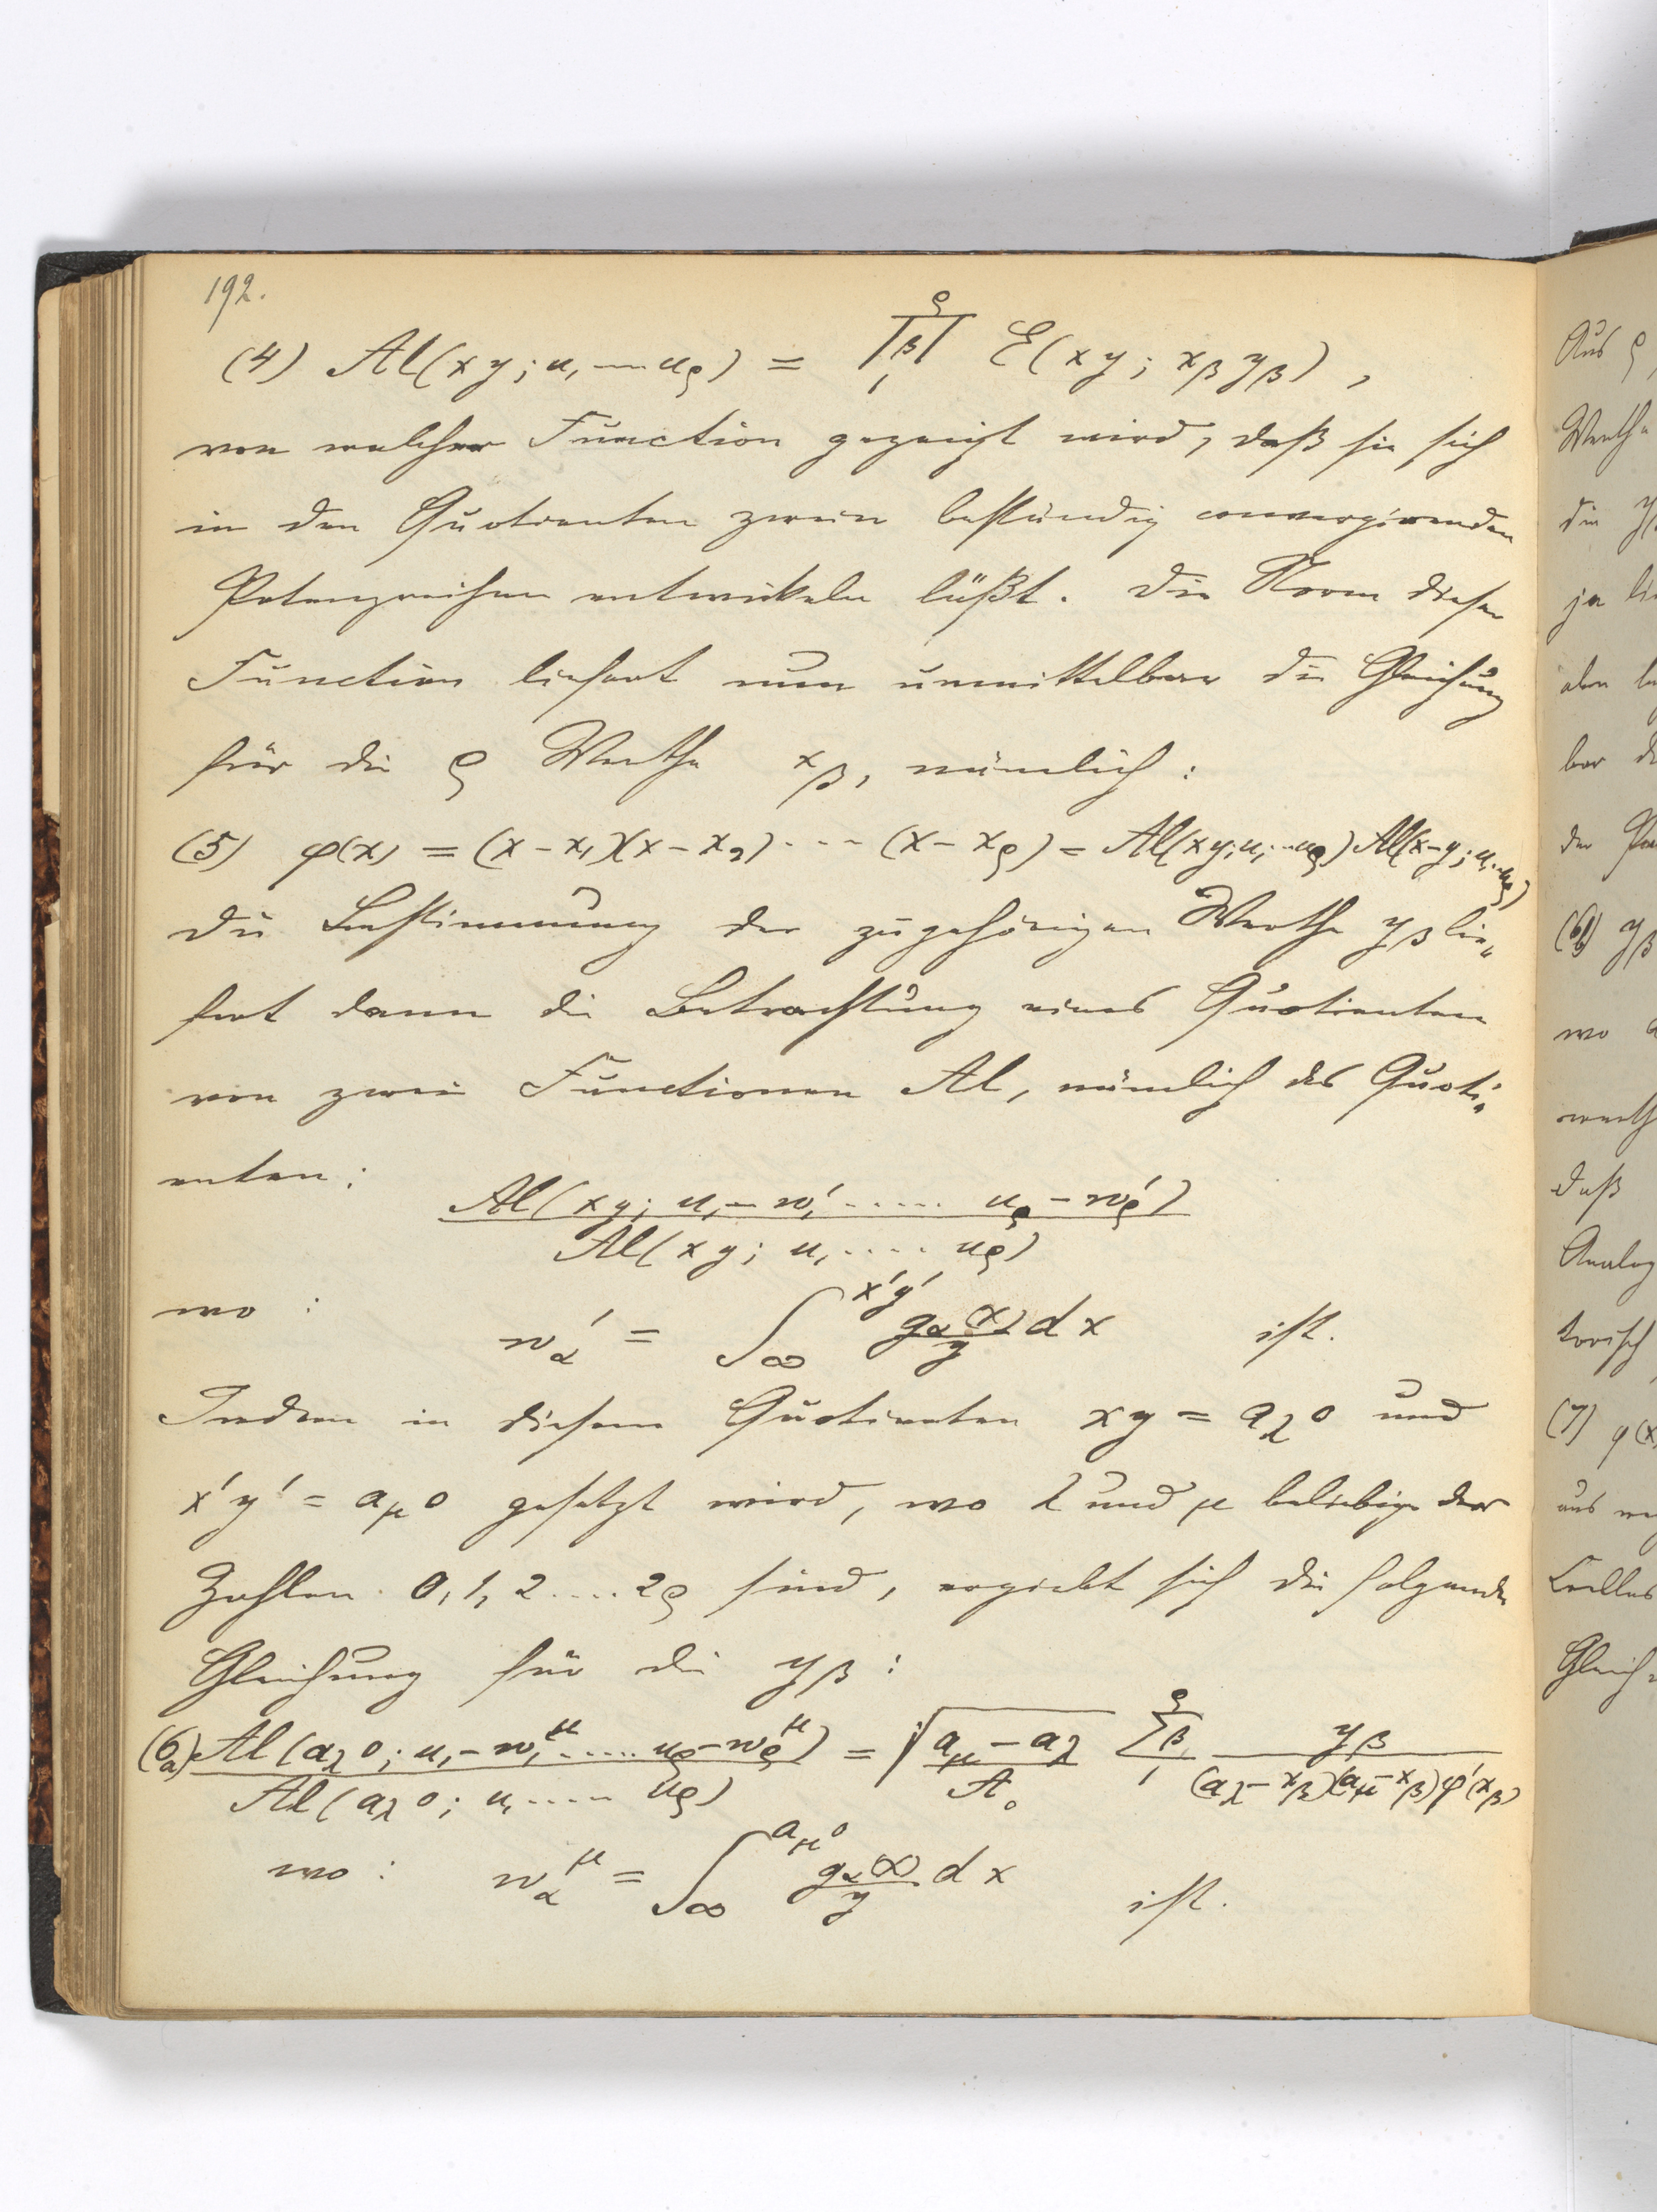 192.
(4) Al(xy; u₁ ---- u_ϱ) = ∏_{β=1}^{ϱ} E(xy; x_β y_β),
von welcher Function gezeigt wird, daß sie sich
in den Quotienten zweier beständig convergirenden
Potenzreihen entwickeln läßt. Die Norm dieser
Function liefert nun unmittelbar die Gleichung
für die ϱ Werthe x_β, nämlich:
(5) φ(x) = (x-x₁)(x-x₂) ---- (x-x_ϱ) = Al(xy; u₁ --- u_ϱ) Al(x-y; u₁ -- u_ϱ)
Die Bestimmung der zugehörigen Werthe y_β lie„
fert dann die Betrachtung eines Quotienten
von zwei Functionen Al, nämlich des Quoti„
enten:
Al(xy; u₁ - w₁′ ...... u_ϱ - w_ϱ′)
Al(xy; u₁ ..... u_ϱ)
wo: w_α′ = ∫_∞^{x′y′} g_α(x)/y dx ist.
Indem in diesem Quotienten xy = a_λ 0 und
x′y′ = a_μ 0 gesetzt wird, wo λ und μ beliebige der
Zahlen 0, 1, 2 .... 2ϱ sind, ergiebt sich die folgende
Gleichung für die y_β:
(6a) Al(a_λ 0; u₁ - w₁^μ ...... u_ϱ - w_ϱ^μ) / Al(a_λ 0; u₁ ..... u_ϱ) = √((a_μ - a_λ)/A₀) ∑_{β=1}^{ϱ} y_β / ((a_λ - x_β)(a_μ - x_β) φ′(x_β))
wo: w_α^μ = ∫_∞^{a_μ 0} g_α(x)/y dx ist.
Aus ϱ
Werthe
die y
ja
bar
der
(6b) y_β
wo
daß
Analog
(7) φ(x)
aus
Gleich